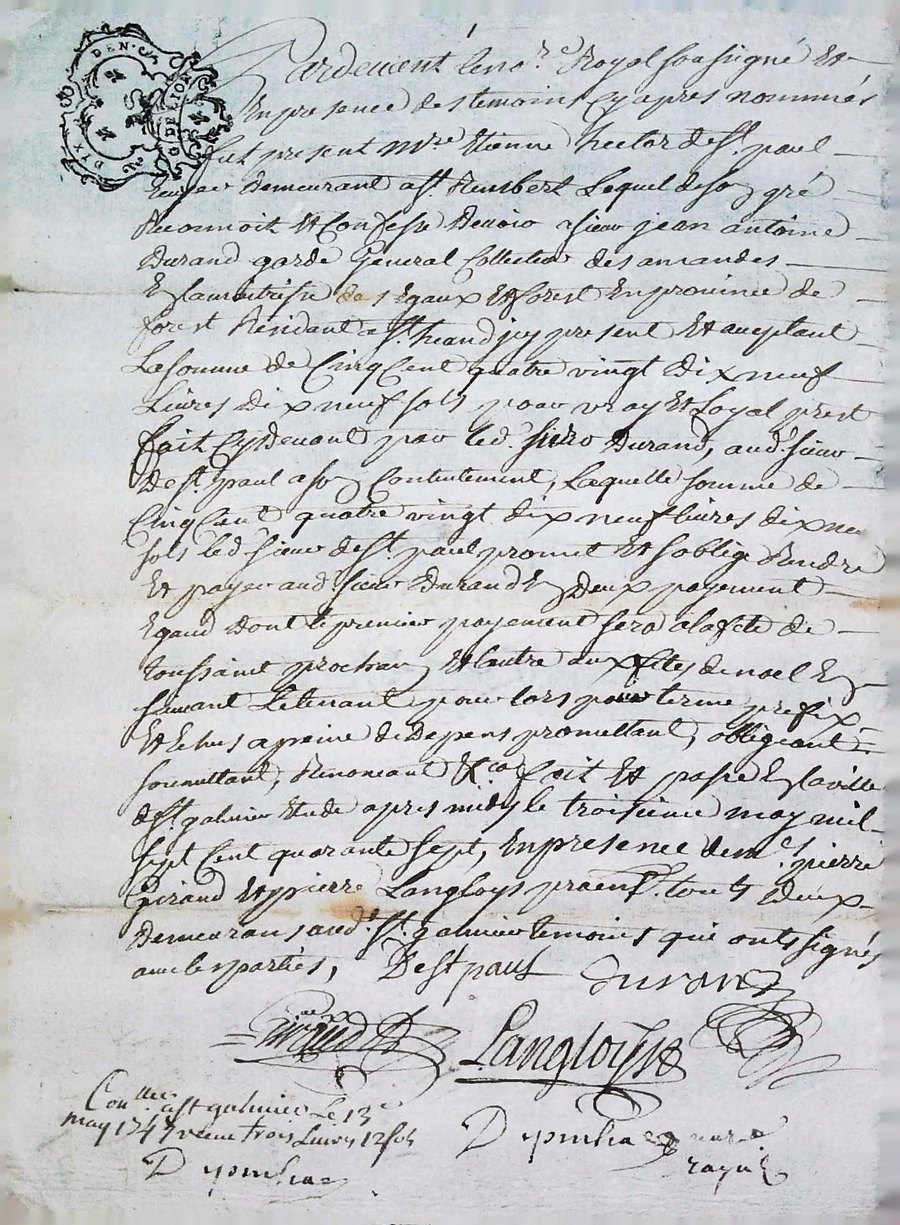 Pardevant le no.re Royal soussigné Et
En presence des temoins Cy apres nommés
fut present m.re Etienne hector de st. paul
Ecuier Demeurant a st. Rembert Lequel de son gré
Reconnoit Et Confesse Devoir a sieur jean antoine
Durand garde General Collecteur des amandes
En la maitrise des Egaux Et forest En province de
forest Residant a st. heand jcy present Et aceptant
La somme de Cinq Cent quatre vingt Dix neuf
Livres Dix neuf sols pour vray Et Loyal prest
fait Cy Devant par led. sieur Durand, aud. sieur
De st. paul a son Contentement, Laquelle somme de
Cinq Cent quatre vingt dix neuf livres dix neu
sols led. sieur de st. paul promet Et soblige Rendre
Et payer aud. sieur Durand En Deux payement
Egaud Dont le premier payement sera a la fete de
toussaint prochain Et lautre aux fetes de noel En
suivant Le tenant pour lors pour terme prefix
Et Echus a peine de Depens promettant, obligeant
soumettant, Renoncant &ca fait Et passé En la ville
de st. galmier Etude apres midy le troisieme may mil
sept Cent quarante sept, En presence de me. pierre
Giraud Et pierre Langloys praen. touts Deux
Demeurans aud. st. galmier temoins qui onts signés
avec les parties, De st paul Durand
Giraud Langloys
Con.llée a st galmier Le 13e
may 1747 Trois Livres 12 sols